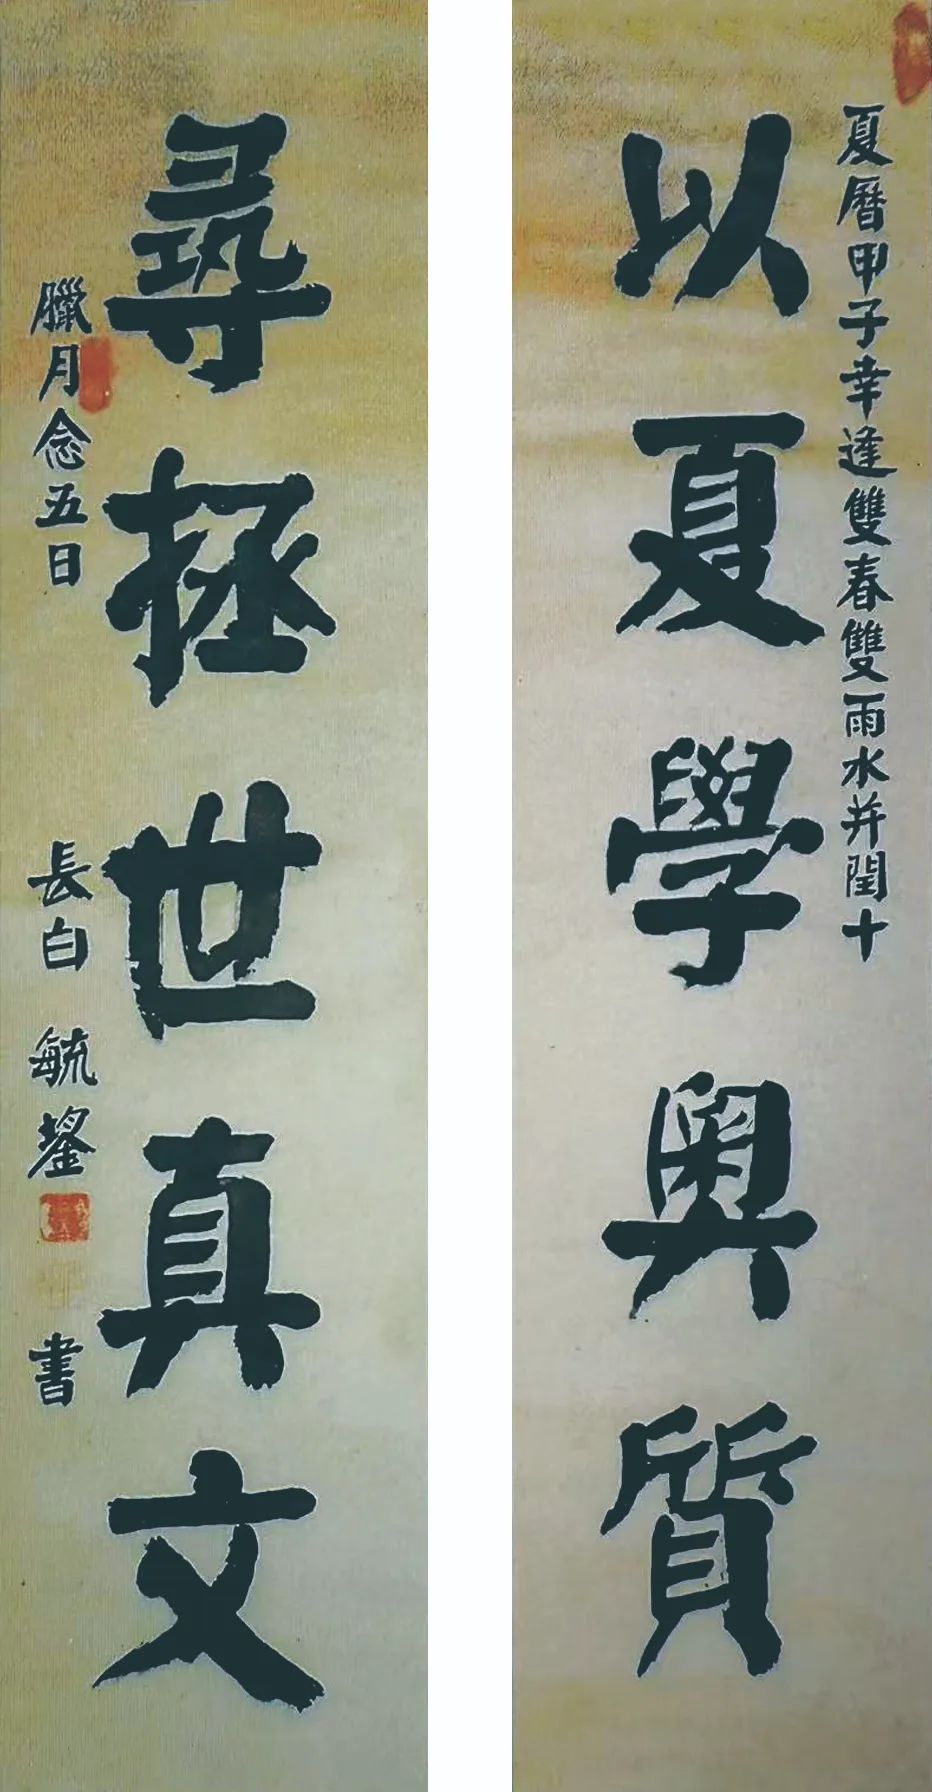 夏曆甲子幸逢雙春雙雨水并閏十
以夏學奧質
尋拯世真文
臘月念五日
長白 毓鋆 書